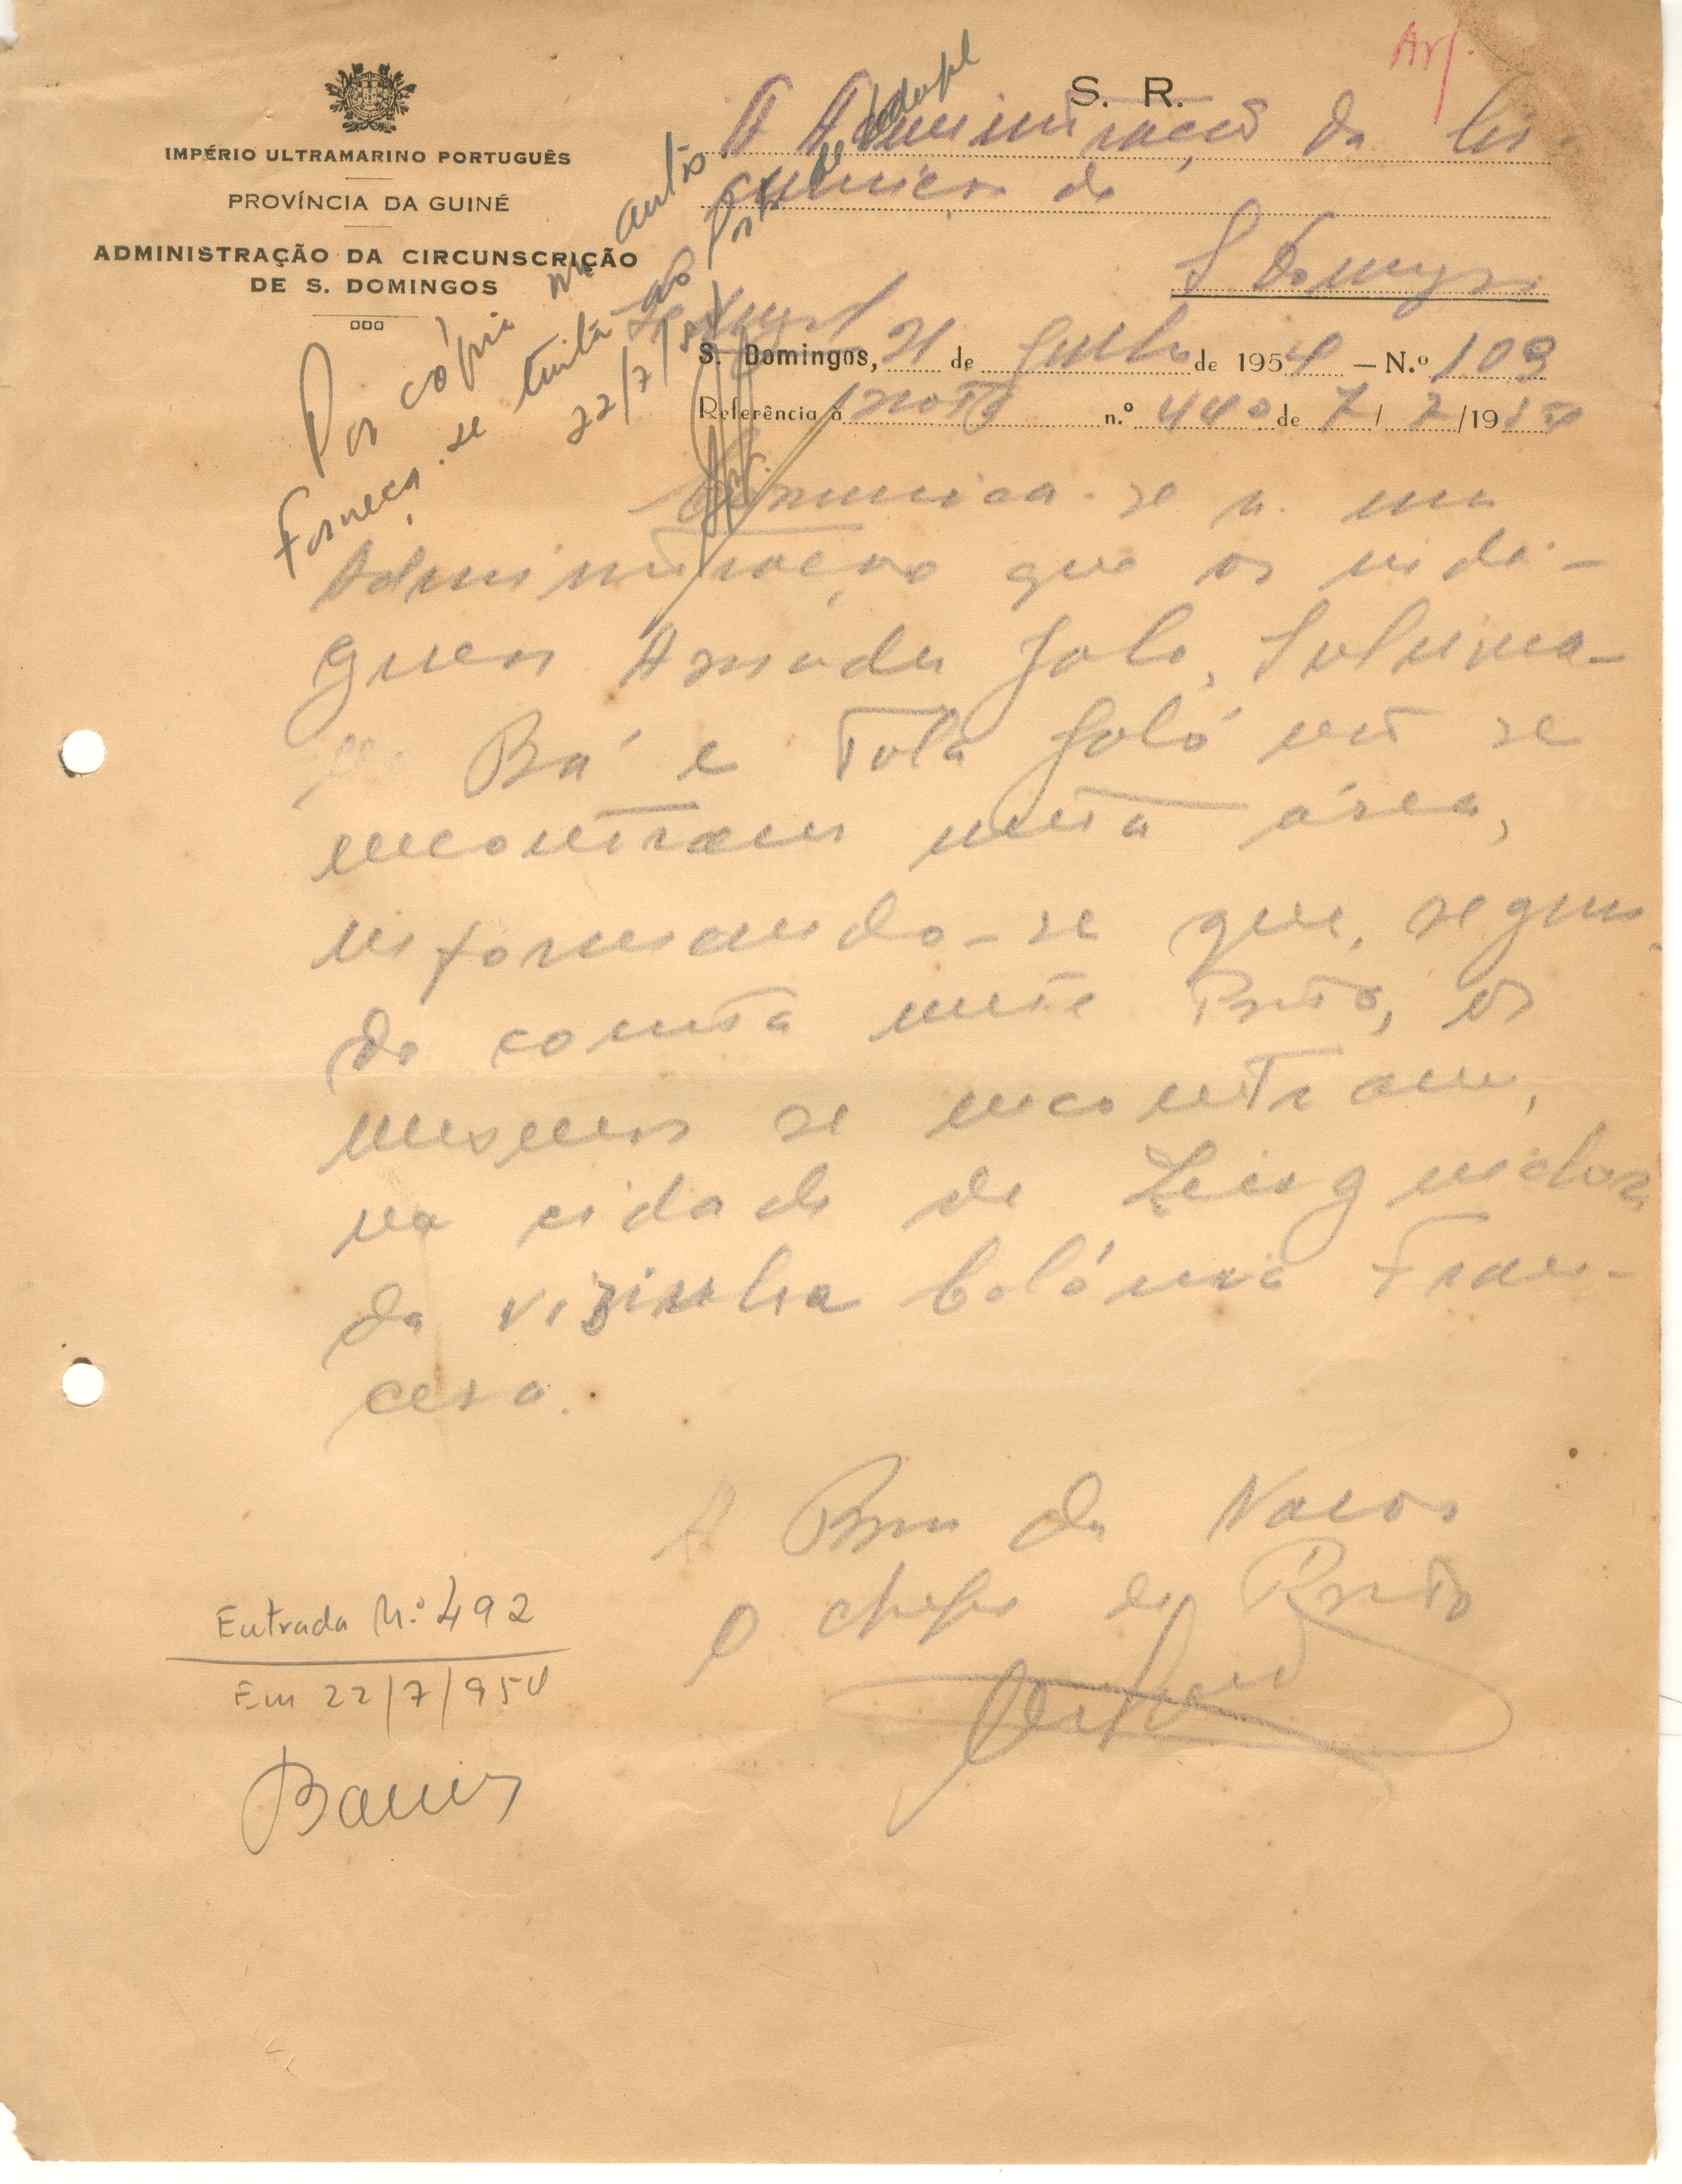 Arq.
S. R.
IMPÉRIO ULTRAMARINO PORTUGUÊS
PROVÍNCIA DA GUINÉ
ADMINISTRAÇÃO DA CIRCUNSCRIÇÃO
DE S. DOMINGOS
À Administração da Cir-
cunscrição de
S. Domingos
S. Domingos, 21 de Julho de 1954 — N.º 109
Referência à nota n.º 440 de 7/7/1954
Por cópia
Forneça-se
22/7/54
Comunica-se a essa
Administração que os indí-
genas Amadu Jaló, Sulima-
Bá e Tala Jaló não se
encontram nesta área,
informando-se que, segun-
do consta neste Posto, os
mesmos se encontram,
na cidade de Zinguichor
da vizinha Colónia Fran-
cesa.
A Bem da Nação
O Chefe do Posto
Entrada N.º 492
Em 22/7/954